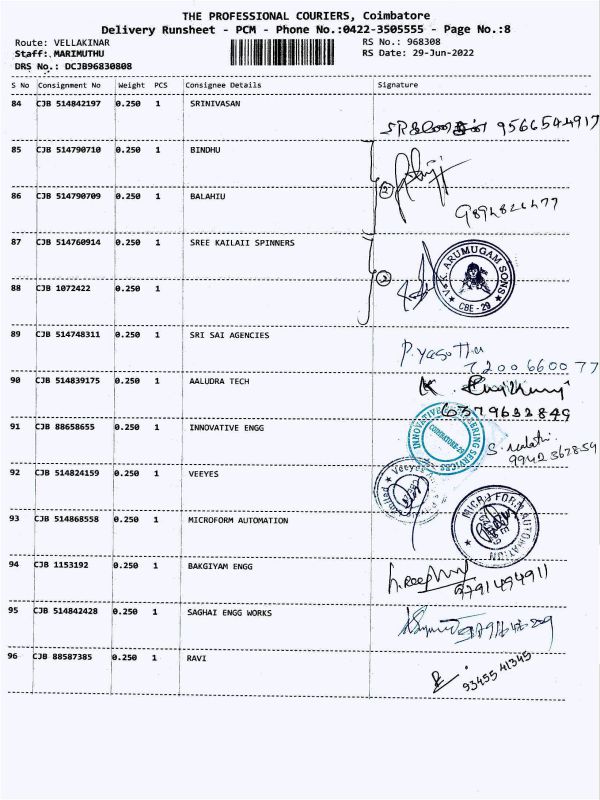 THE PROFESSIONAL COURIERS, Coimbatore
Delivery Runsheet - PCM - Phone No.:0422-3505555 - Page No.:8
Route: VELLAKINAR RS No.: 968308
Staff: MARIMUTHU RS Date: 29-Jun-2022
DRS No.: DCJB96830808
S No Consignment No Weight PCS Consignee Details Signature
84 CJB 514842197 0.250 1 SRINIVASAN
9566544917
85 CJB 514790710 0.250 1 BINDHU
86 CJB 514790709 0.250 1 BALAHIU
2
87 CJB 514760914 0.250 1 SREE KAILAII SPINNERS
V.K. ARUMUGAM SONS
CBE - 29
88 CJB 1072422 0.250 1
2
89 CJB 514748311 0.250 1 SRI SAI AGENCIES
P. Yasotha
7200660077
90 CJB 514839175 0.250 1 AALUDRA TECH
K.
91 CJB 88658655 0.250 1 INNOVATIVE ENGG
INNOVATIVE ENGINEERING SERVICES
COIMBATORE-29
S. Malathi
92 CJB 514824159 0.250 1 VEEYES
Veeyes
93 CJB 514868558 0.250 1 MICROFORM AUTOMATION
MICRO FORM AUTOMATION
94 CJB 1153192 0.250 1 BAKGIYAM ENGG
9791494911
95 CJB 514842428 0.250 1 SAGHAI ENGG WORKS
96 CJB 88587385 0.250 1 RAVI
9345541345